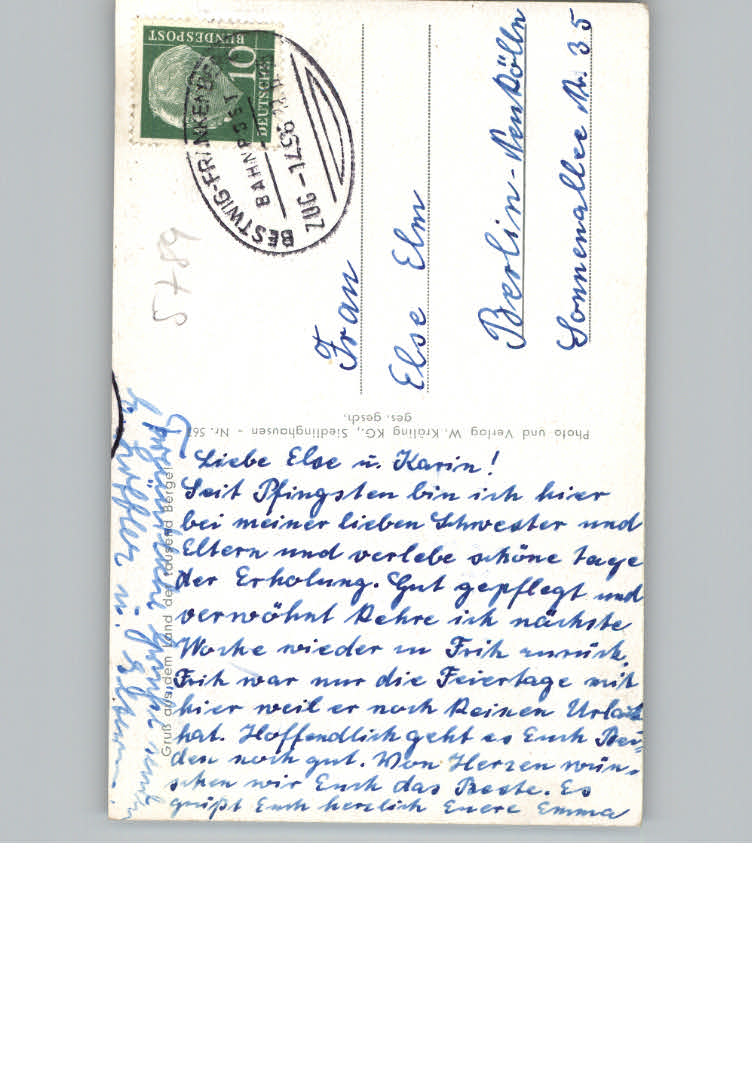 Liebe Else u. Karin!
Seit Pfingsten bin ich hier
bei meiner lieben Schwester und
Eltern und verlebe schöne tage
der Erholung. Gut gepflegt und
verwöhnt kehre ich nächste
Woche wieder zu Fritz zurück.
Fritz war nur die Feiertage mit
hier weil er noch keinen Urlaub
hat. Hoffendlich geht es Euch Bei-
den noch gut. Von Herzen wün-
schen wir Euch das Beste. Es
grüßt Euch herzlich Euere Emma
u. Eltern
Gruß aus dem Land der tausend Berge
Photo und Verlag W. Kröling KG., Siedlinghausen - Nr. 567
ges. gesch.
Frau
Else Elm
Berlin-Neukölln
Sonnenallee Nr. 35
5789
DEUTSCHE
BUNDESPOST
10
BESTWIG-FRANKENBERG
BAHNPOST
ZUG